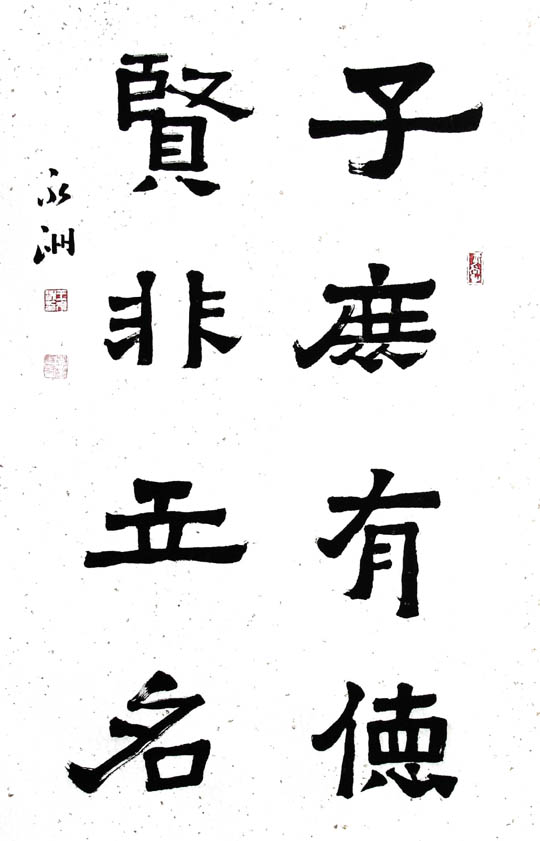 子庶有德
賢非立名
永洲